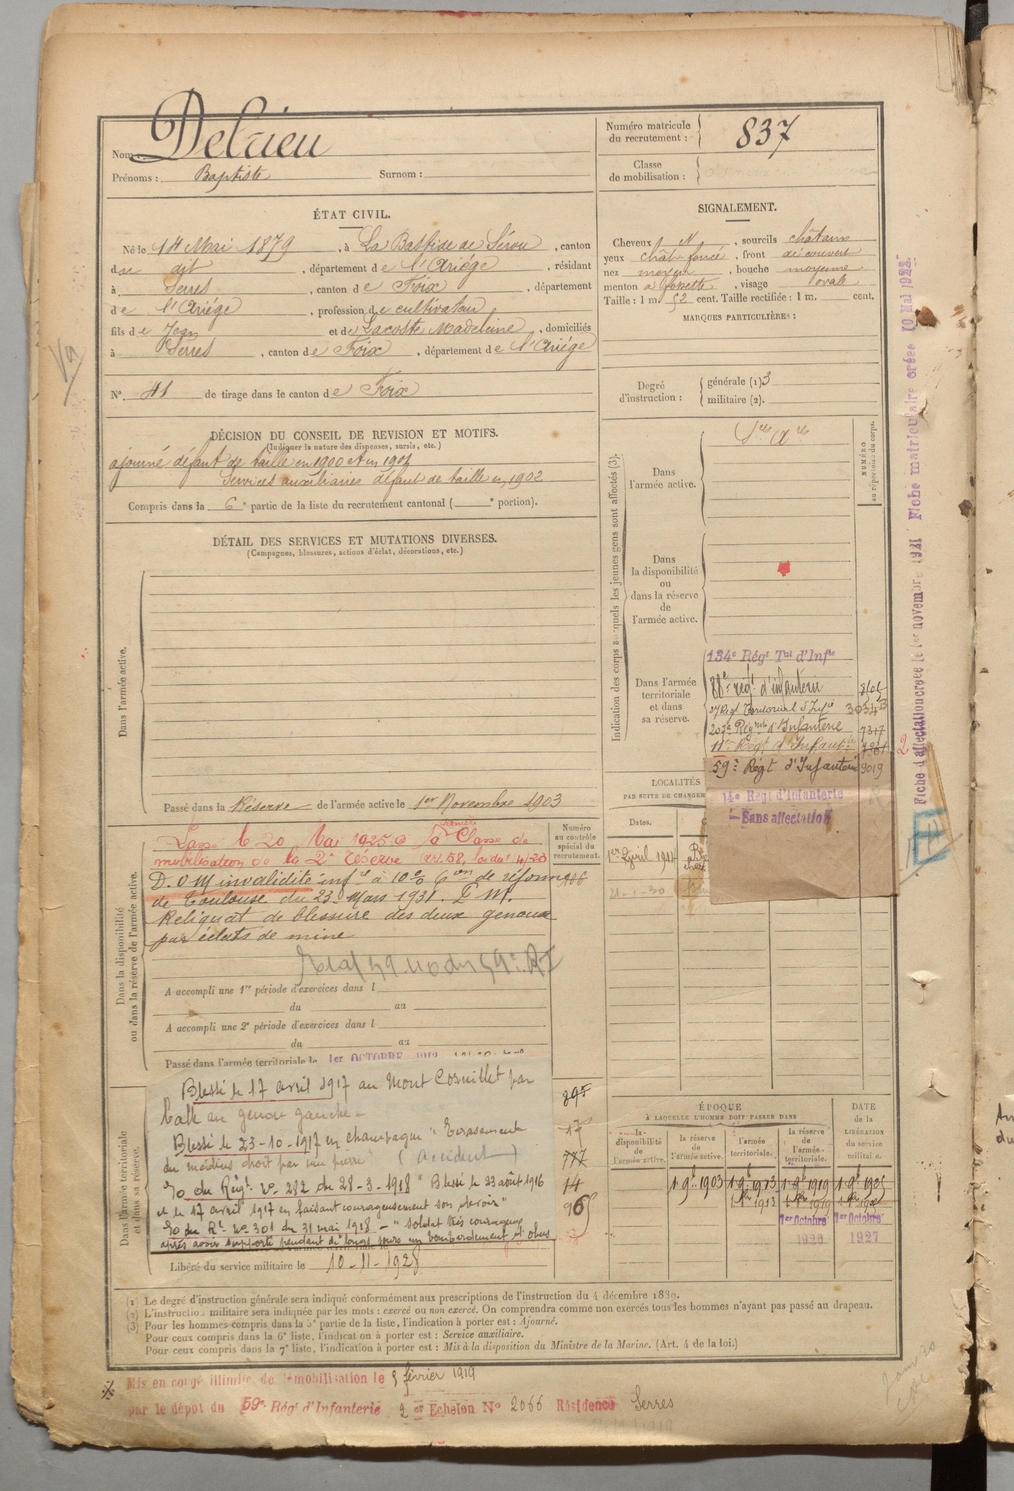 Nom : Delrieu
Prénoms : Baptiste Surnom :
Numéro matricule du recrutement : 837
Classe de mobilisation :
ÉTAT CIVIL.
Né le 14 Mai 1879, à La Bastide de Sérou, canton
du dit, département de l'Ariége, résidant
à Serres, canton de Foix, département
de l'Ariége, profession de cultivateur
fils de Jean et de Lacoste Madeleine, domiciliés
à Serres, canton de Foix, département de l'Ariége
N° 41 de tirage dans le canton de Foix
SIGNALEMENT.
Cheveux N, sourcils châtains
yeux chât. foncé, front découvert
nez moyen, bouche moyenne
menton à fossette, visage ovale
Taille : 1 m. 52 cent. Taille rectifiée : 1 m. cent.
MARQUES PARTICULIÈRES :
Degré d'instruction : générale (1) 3
militaire (2).
DÉCISION DU CONSEIL DE REVISION ET MOTIFS.
(Indiquer la nature des dispenses, sursis, etc.)
ajourné défaut de taille en 1900 et en 1901
Services auxiliaires défaut de taille en 1902
Compris dans la 6e partie de la liste du recrutement cantonal ( e portion).
DÉTAIL DES SERVICES ET MUTATIONS DIVERSES.
(Campagnes, blessures, actions d'éclat, décorations, etc.)
Dans l'armée active.
Passé dans la Réserve de l'armée active le 1er Novembre 1903
Indication des corps auxquels les jeunes gens sont affectés (3).
NUMÉRO au répertoire du corps.
Dans l'armée active.
Dans la disponibilité ou dans la réserve de l'armée active.
Dans l'armée territoriale et dans sa réserve.
134e Régt Tal d'Infie
88e régt d'infanterie
27 Régt Territorial d'Infie
207e Régt d'Infanterie 7317
11e Régt d'Infanterie
59e Régt d'Infanterie 9019
14e Régt d'Infanterie
Sans affectation
LOCALITÉS
PAR SUITE DE CHANGEM
Dates.
1er Avril 1914
21-1-30
Fiche d'affectation créée le 1er novembre 1921 Fiche matriculaire créée 10 Mai 1922
Dans la disponibilité ou dans la réserve de l'armée active.
Numéro au contrôle spécial du recrutement.
Classé le 20 Mai 1925 à la dernière Classe de
mobilisation de la 2e réserve
D.O.M invalidité infre à 10% Com de réforme
de Toulouse du 23 Mars 1931. P.M.
Reliquat de blessure des deux genoux
par éclats de mine
A accompli une 1re période d'exercices dans l
du au
A accompli une 2e période d'exercices dans l
du au
Passé dans l'armée territoriale le 1er OCTOBRE
Dans l'armée territoriale et dans sa réserve.
Blessé le 17 avril 1917 au Mont Cornillet par
balle au genou gauche -
Blessé le 23-10-1917 en Champagne "Ecrasement
du médius droit par une pierre" (accident)
O du Régt n° 282 du 28-3-1918 "Blessé le 23 août 1916
et le 17 avril 1917 en faisant courageusement son devoir"
O du Rt n° 301 du 31 mai 1918 - "soldat très courageux
après avoir supporté pendant de longs jours un bombardement d'obus
Libéré du service militaire le 10-11-1928
895
777
14
ÉPOQUE
À LAQUELLE L'HOMME DOIT PASSER DANS
la disponibilité de l'armée active.
la réserve de l'armée active.
l'armée territoriale.
la réserve de l'armée territoriale.
DATE de la LIBÉRATION du service militaire.
1 9bre 1903 1 9bre 1913 1 9bre 1919
1er Octobre 1er Octobre
1920 1927
(1) Le degré d'instruction générale sera indiqué conformément aux prescriptions de l'instruction du 4 décembre 1889.
(2) L'instruction militaire sera indiquée par les mots : exercé ou non exercé. On comprendra comme non exercés tous les hommes n'ayant pas passé au drapeau.
(3) Pour les hommes compris dans la 5e partie de la liste, l'indication à porter est : Ajourné.
Pour ceux compris dans la 6e liste, l'indication à porter est : Service auxiliaire.
Pour ceux compris dans la 7e liste, l'indication à porter est : Mis à la disposition du Ministre de la Marine. (Art. 4 de la loi.)
Mis en congé illimité de démobilisation le 5 février 1919
par le dépôt du 59e Régt d'Infanterie 2e Echelon N° 2066 Résidence Serres